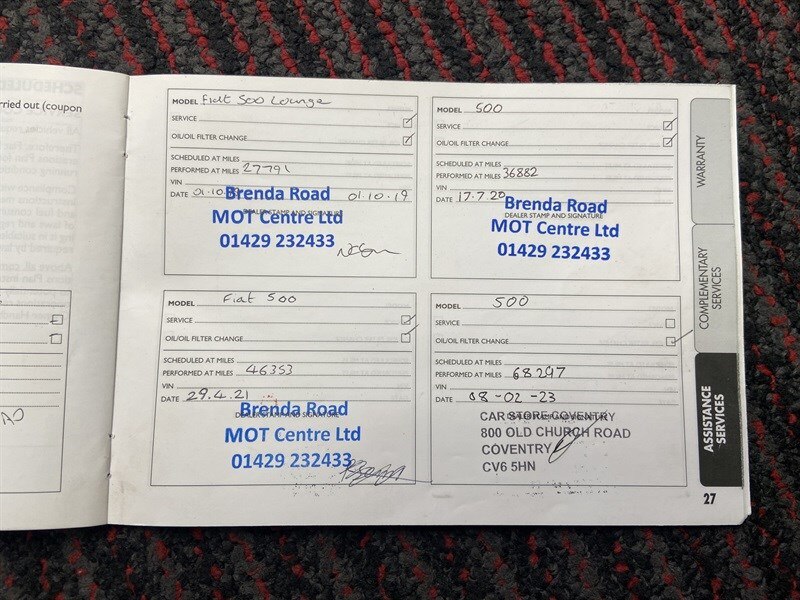 rried out (coupon
MODEL Fiat 500 Lounge
SERVICE
OIL/OIL FILTER CHANGE
SCHEDULED AT MILES
PERFORMED AT MILES 27791
VIN
DATE 01.10 01.10.19
DEALER STAMP AND SIGNATURE
Brenda Road
MOT Centre Ltd
01429 232433
MODEL 500
SERVICE
OIL/OIL FILTER CHANGE
SCHEDULED AT MILES
PERFORMED AT MILES 36882
VIN
DATE 17.7.20
Brenda Road
DEALER STAMP AND SIGNATURE
MOT Centre Ltd
01429 232433
MODEL Fiat 500
SERVICE
OIL/OIL FILTER CHANGE
SCHEDULED AT MILES
PERFORMED AT MILES 46353
VIN
DATE 29.4.21
Brenda Road
DEALER STAMP AND SIGNATURE
MOT Centre Ltd
01429 232433
MODEL 500
SERVICE
OIL/OIL FILTER CHANGE
SCHEDULED AT MILES
PERFORMED AT MILES 68297
VIN
DATE 08-02-23
CAR STORE COVENTRY
800 OLD CHURCH ROAD
COVENTRY
CV6 5HN
WARRANTY
COMPLEMENTARY
SERVICES
ASSISTANCE
SERVICES
27